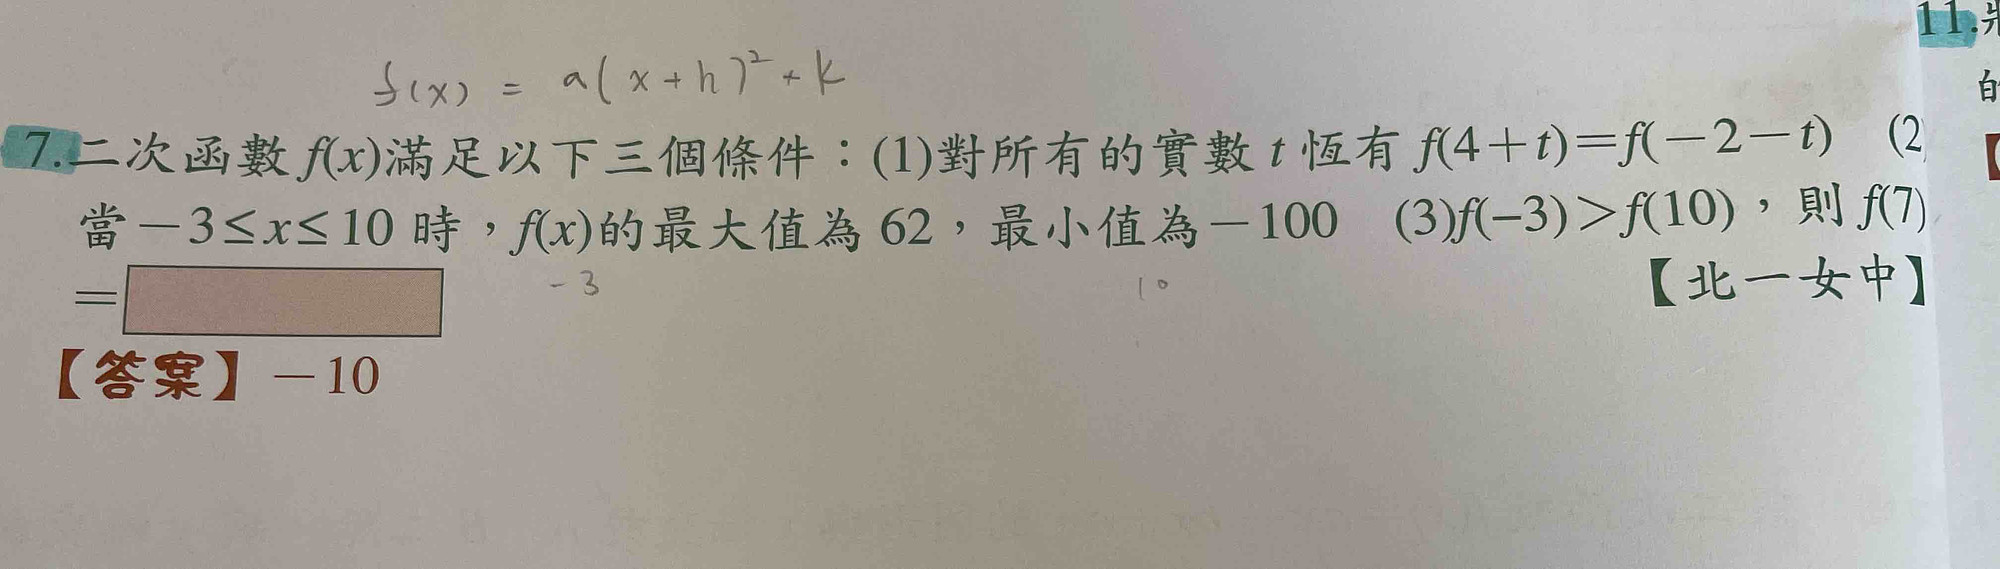 11.
f(x) = a(x+h)²+k
7.二次函數 f(x)滿足以下三個條件：(1)對所有的實數 t 恆有 f(4＋t)＝f(－2－t) (2
當－3≤x≤10 時，f(x)的最大值為 62，最小值為－100 (3)f(−3)＞f(10)，則 f(7)
-3 10
＝
【北一女中】
【答案】－10